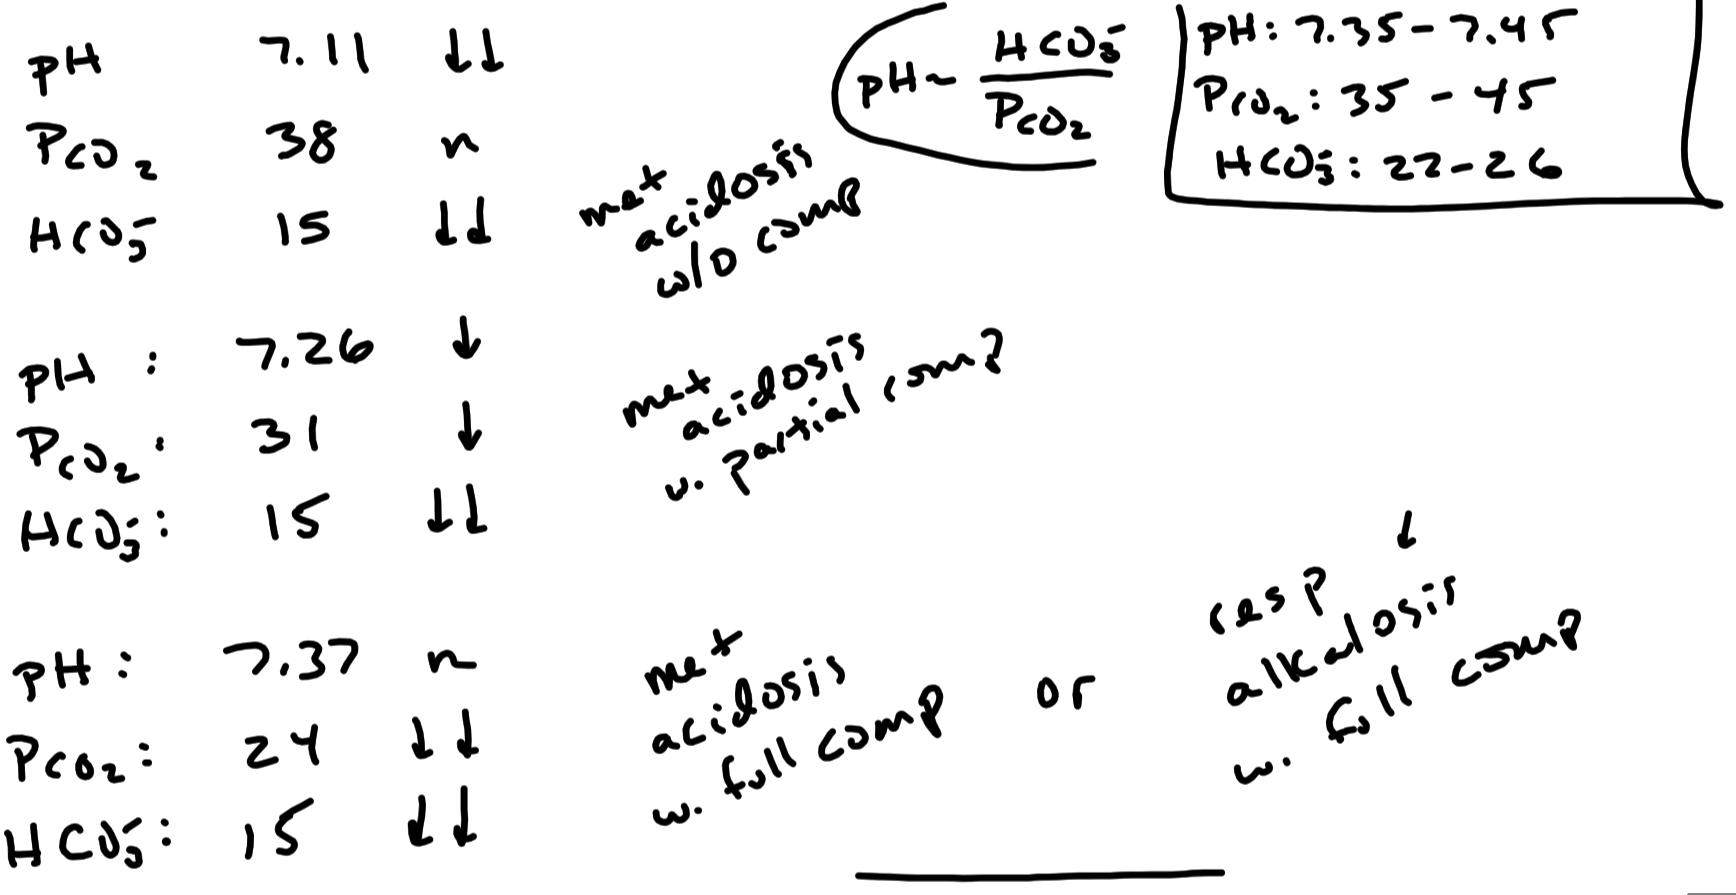 pH 7.11 ↓↓
PCO2 38 n
HCO3- 15 ↓↓
met
acidosis
w/o comp
pH ~ HCO3- / PCO2
pH: 7.35 - 7.45
PCO2: 35 - 45
HCO3-: 22-26
pH: 7.26 ↓
PCO2: 31 ↓
HCO3-: 15 ↓↓
met
acidosis
w. partial comp
pH: 7.37 n
PCO2: 24 ↓↓
HCO3-: 15 ↓↓
met
acidosis
w. full comp
or
↓
resp
alkalosis
w. full comp